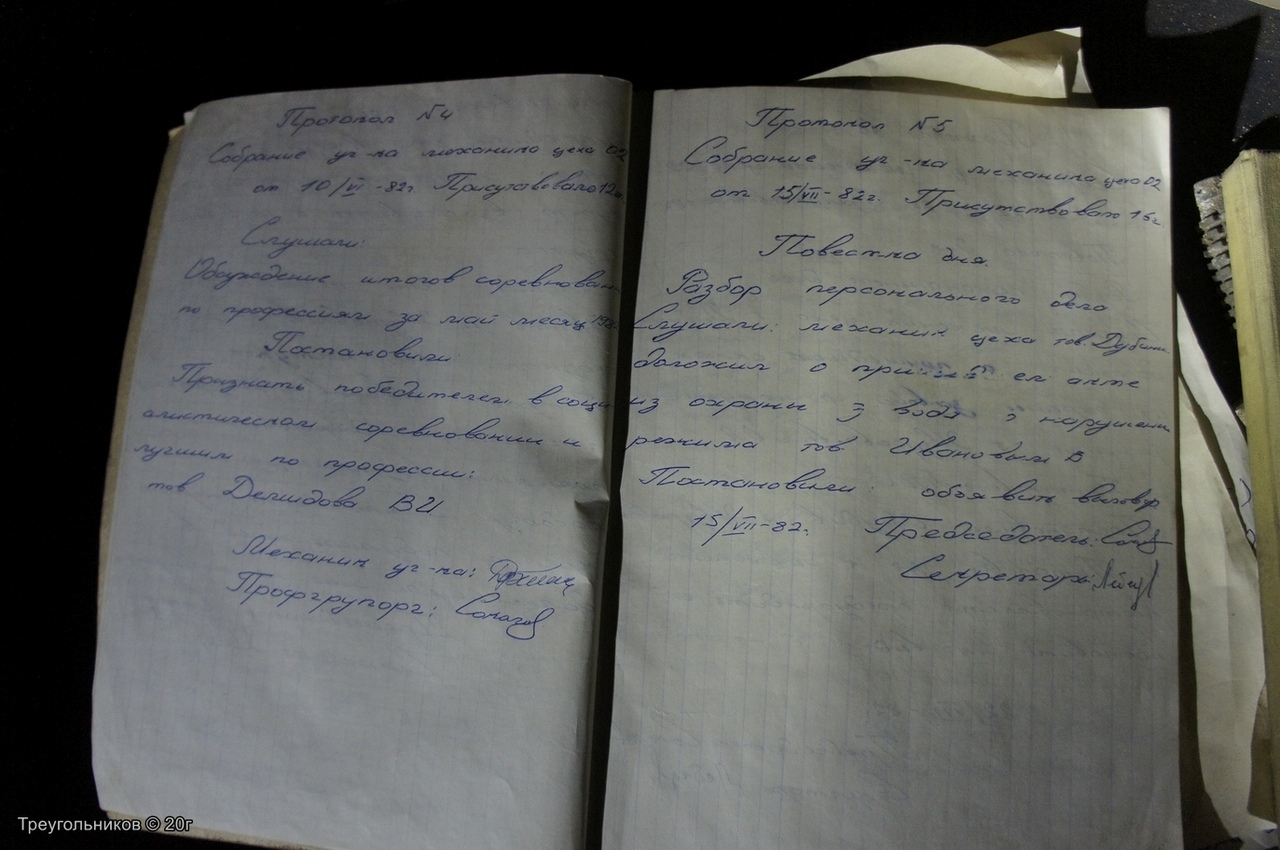 Протокол №4
Собрание уч-ка механика цеха 02
от 10/VI-82г Присутствовало 12
Слушали:
Обсуждение итогов соревнован
по профессиям за май месяц
Постановили
Признать победителем в соци
алистическом соревновании и
лучшим по профессии:
тов Демидова ВИ
Механик уч-ка:
Профгрупорг:
Протокол №5
Собрание уч-ка механика цеха 02
от 15/VII-82г. Присутствовало
Повестка дня.
Разбор персонального дела
Слушали: механик цеха тов Дубин
доложил о акте
из охраны з-вода о нарушении
режима тов Ивановым В
Постановили: объявить выговор
15/VII-82г. Председатель:
Секретарь:
Треугольников © 20г